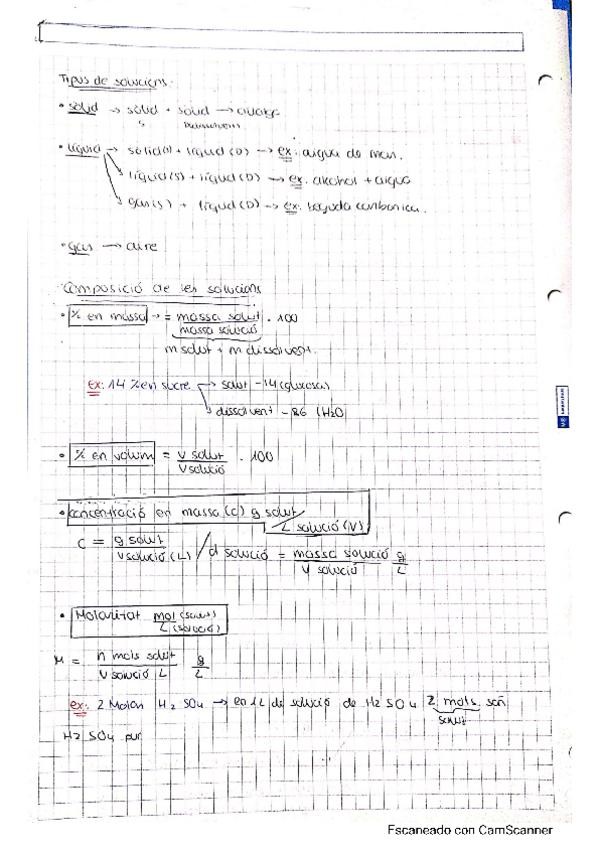 Tipus de solucions.
• sòlid → sòlid + sòlid →
s
• líquid → sòlid(s) + líquid (D) → ex: aigua de mar.
líquid(s) + líquid(D) → ex. alcohol + aigua
gas(s) + líquid (D) → ex. beguda carbonica.
• gas → aire
Composició de les solucions
• % en massa → = massa solut / massa solució . 100
m solut + m dissolvent.
ex: 14 % en sucre → solut - 14 (glucosa)
dissolvent - 86 (H2O
• % en volum = V solut / V solució . 100
• concentració en massa (c) g solut / L solució (V)
C = g solut / V solució (L) / d solució = massa solució / V solució g/L
• Molaritat mol (solut) / L (solució)
M = n mols solut / V solució L g/L
ex: 2 Molar H2 SO4 → en 1L de solució de H2 SO4 2 mols són
solut
H2 SO4 pur
Escaneado con CamScanner